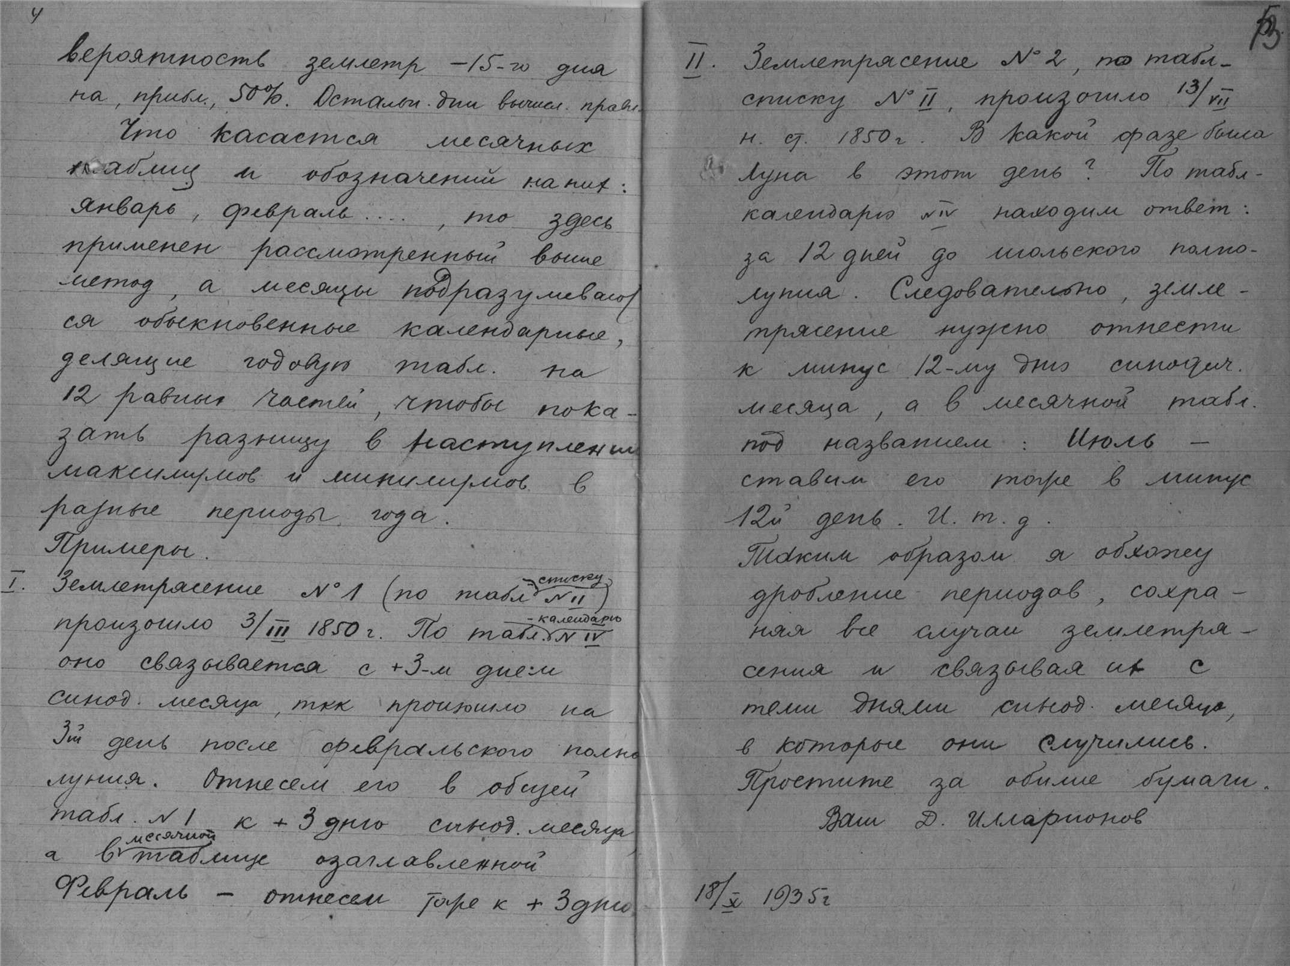 4
вероятность землетр –15-го дня
на, прибл., 50%. Остальн. дни вычисл. правл.
Что касается месячных
таблиц и обозначений на них:
январь, февраль...., то здесь
применен рассмотренный выше
метод, а месяцы подразумевают
ся обыкновенные календарные,
делящие годовую табл. на
12 равных частей, чтобы пока-
зать разницу в наступлении
максимумов и минимумов в
разные периоды года.
Примеры.
I. Землетрясение №1 (по табл.-списку №II)
произошло 3/III 1850г. По табл.-календарю №IV
оно связывается с +3-м днем
синод. месяца, так произошло на
3й день после февральского полно
луния. Отнесем его в общей
табл. №1 к +3 дню синод. месяца,
а в месячной таблице озаглавленной
Февраль – отнесем тоже к +3 дню.
5
II. Землетрясение №2, по табл-
списку №II, произошло 13/VII
н. ст. 1850г. В какой фазе была
Луна в этот день? По табл-
календарю №IV находим ответ:
за 12 дней до июльского полно-
луния. Следовательно, земле-
трясение нужно отнести
к минус 12-му дню синодич.
месяца, а в месячной табл.
под названием: Июль –
ставим его тоже в минус
12й день. И. т. д.
Таким образом я обхожу
дробление периодов, сохра-
няя все случаи землетря-
сения и связывая их с
теми днями синод. месяца,
в которые они случились.
Простите за обилие бумаги.
Ваш Д. Илларионов
18/X 1935г